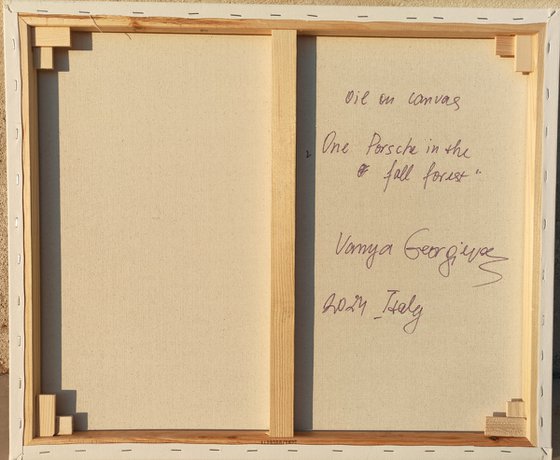 oil on canvas
One Porsche in the
fall forest"
Vanya Georgieva
2024 Italy